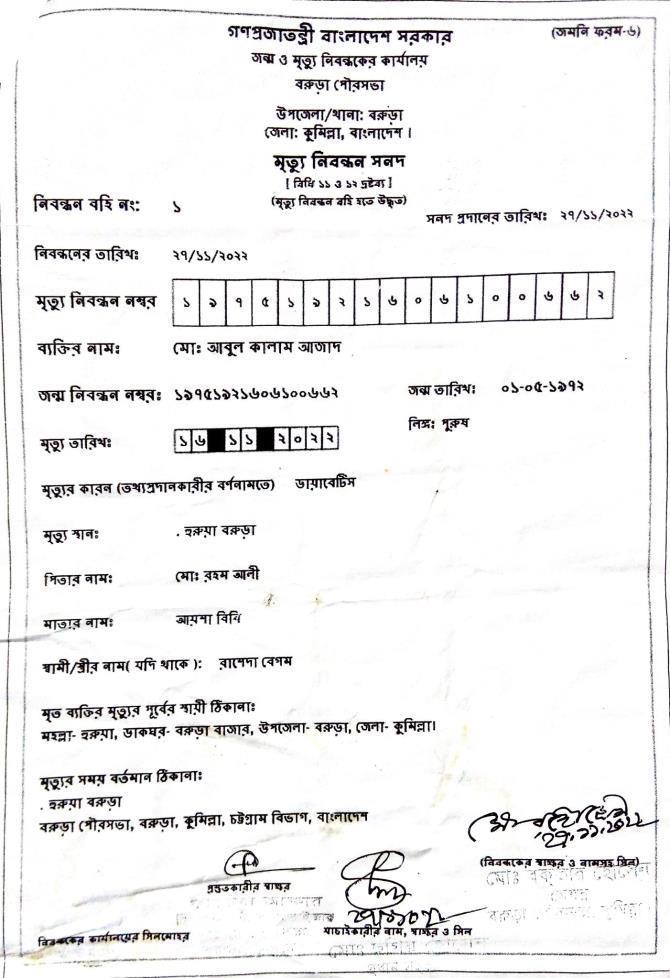 গণপ্রজাতন্ত্রী বাংলাদেশ সরকার
(জমনি ফরম-৬)
জন্ম ও মৃত্যু নিবন্ধকের কার্যালয়
বরুড়া পৌরসভা
উপজেলা/থানা: বরুড়া
জেলা: কুমিল্লা, বাংলাদেশ ।
মৃত্যু নিবন্ধন সনদ
[ বিধি ১১ ও ১২ দ্রষ্টব্য ]
(মৃত্যু নিবন্ধন বহি হতে উদ্ধৃত)
নিবন্ধন বহি নং: ১
সনদ প্রদানের তারিখ: ২৭/১১/২০২২
নিবন্ধনের তারিখ: ২৭/১১/২০২২
মৃত্যু নিবন্ধন নম্বর ১ ৯ ৭ ৫ ১ ৯ ২ ১ ৬ ০ ৬ ১ ০ ০ ৬ ৬ ২
ব্যক্তির নাম: মো: আবুল কালাম আজাদ
জন্ম নিবন্ধন নম্বর: ১৯৭৫১৯২১৬০৬১০০৬৬২ জন্ম তারিখ: ০১-০৫-১৯৭২
লিঙ্গ: পুরুষ
মৃত্যু তারিখ: ১৬ ১১ ২০২২
মৃত্যুর কারন (তথ্যপ্রদানকারীর বর্ণনামতে) ডায়াবেটিস
মৃত্যু স্থান: . হুরুয়া বরুড়া
পিতার নাম: মো: রহম আলী
মাতার নাম: আয়শা বিবি
স্বামী/স্ত্রীর নাম( যদি থাকে ): রাশেদা বেগম
মৃত ব্যক্তির মৃত্যুর পূর্বের স্থায়ী ঠিকানা:
মহল্লা- হুরুয়া, ডাকঘর- বরুড়া বাজার, উপজেলা- বরুড়া, জেলা- কুমিল্লা।
মৃত্যুর সময় বর্তমান ঠিকানা:
. হুরুয়া বরুড়া
বরুড়া পৌরসভা, বরুড়া, কুমিল্লা, চট্টগ্রাম বিভাগ, বাংলাদেশ
২৭.১১.২০২২
(নিবন্ধকের স্বাক্ষর ও নামসহ সিল)
প্রস্তুতকারীর স্বাক্ষর
যাচাইকারীর নাম, স্বাক্ষর ও সিল
নিবন্ধকের কার্যালয়ের সিলমোহর